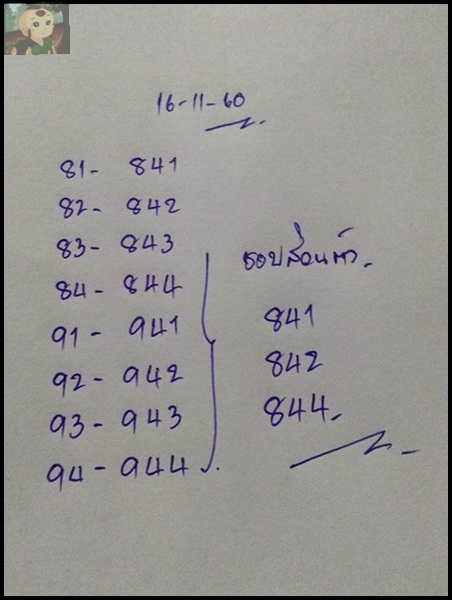 16-11-60
81- 841
82- 842
83- 843
84- 844
91- 941
92- 942
93- 943
94- 944
ชอบส่วนตัว
841
842
844